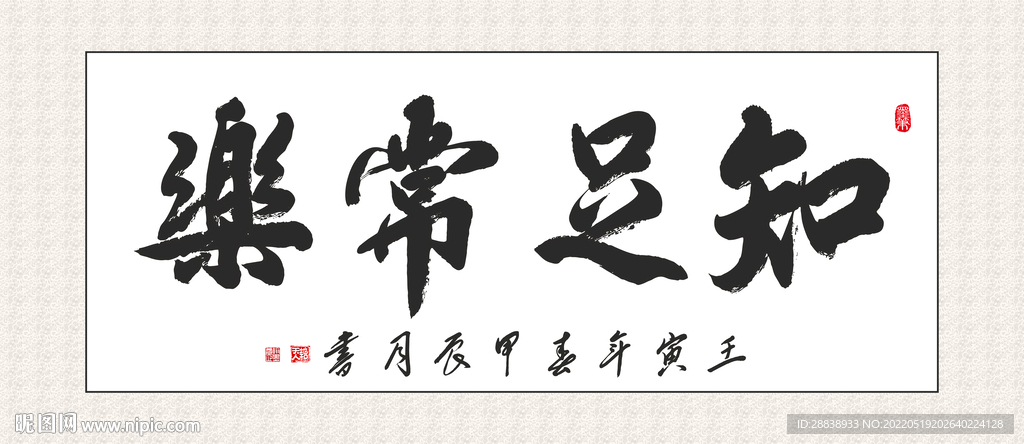 知足常樂
壬寅年春甲辰月書
昵图网 www.nipic.com
ID:28838933 NO:20220519202640224128